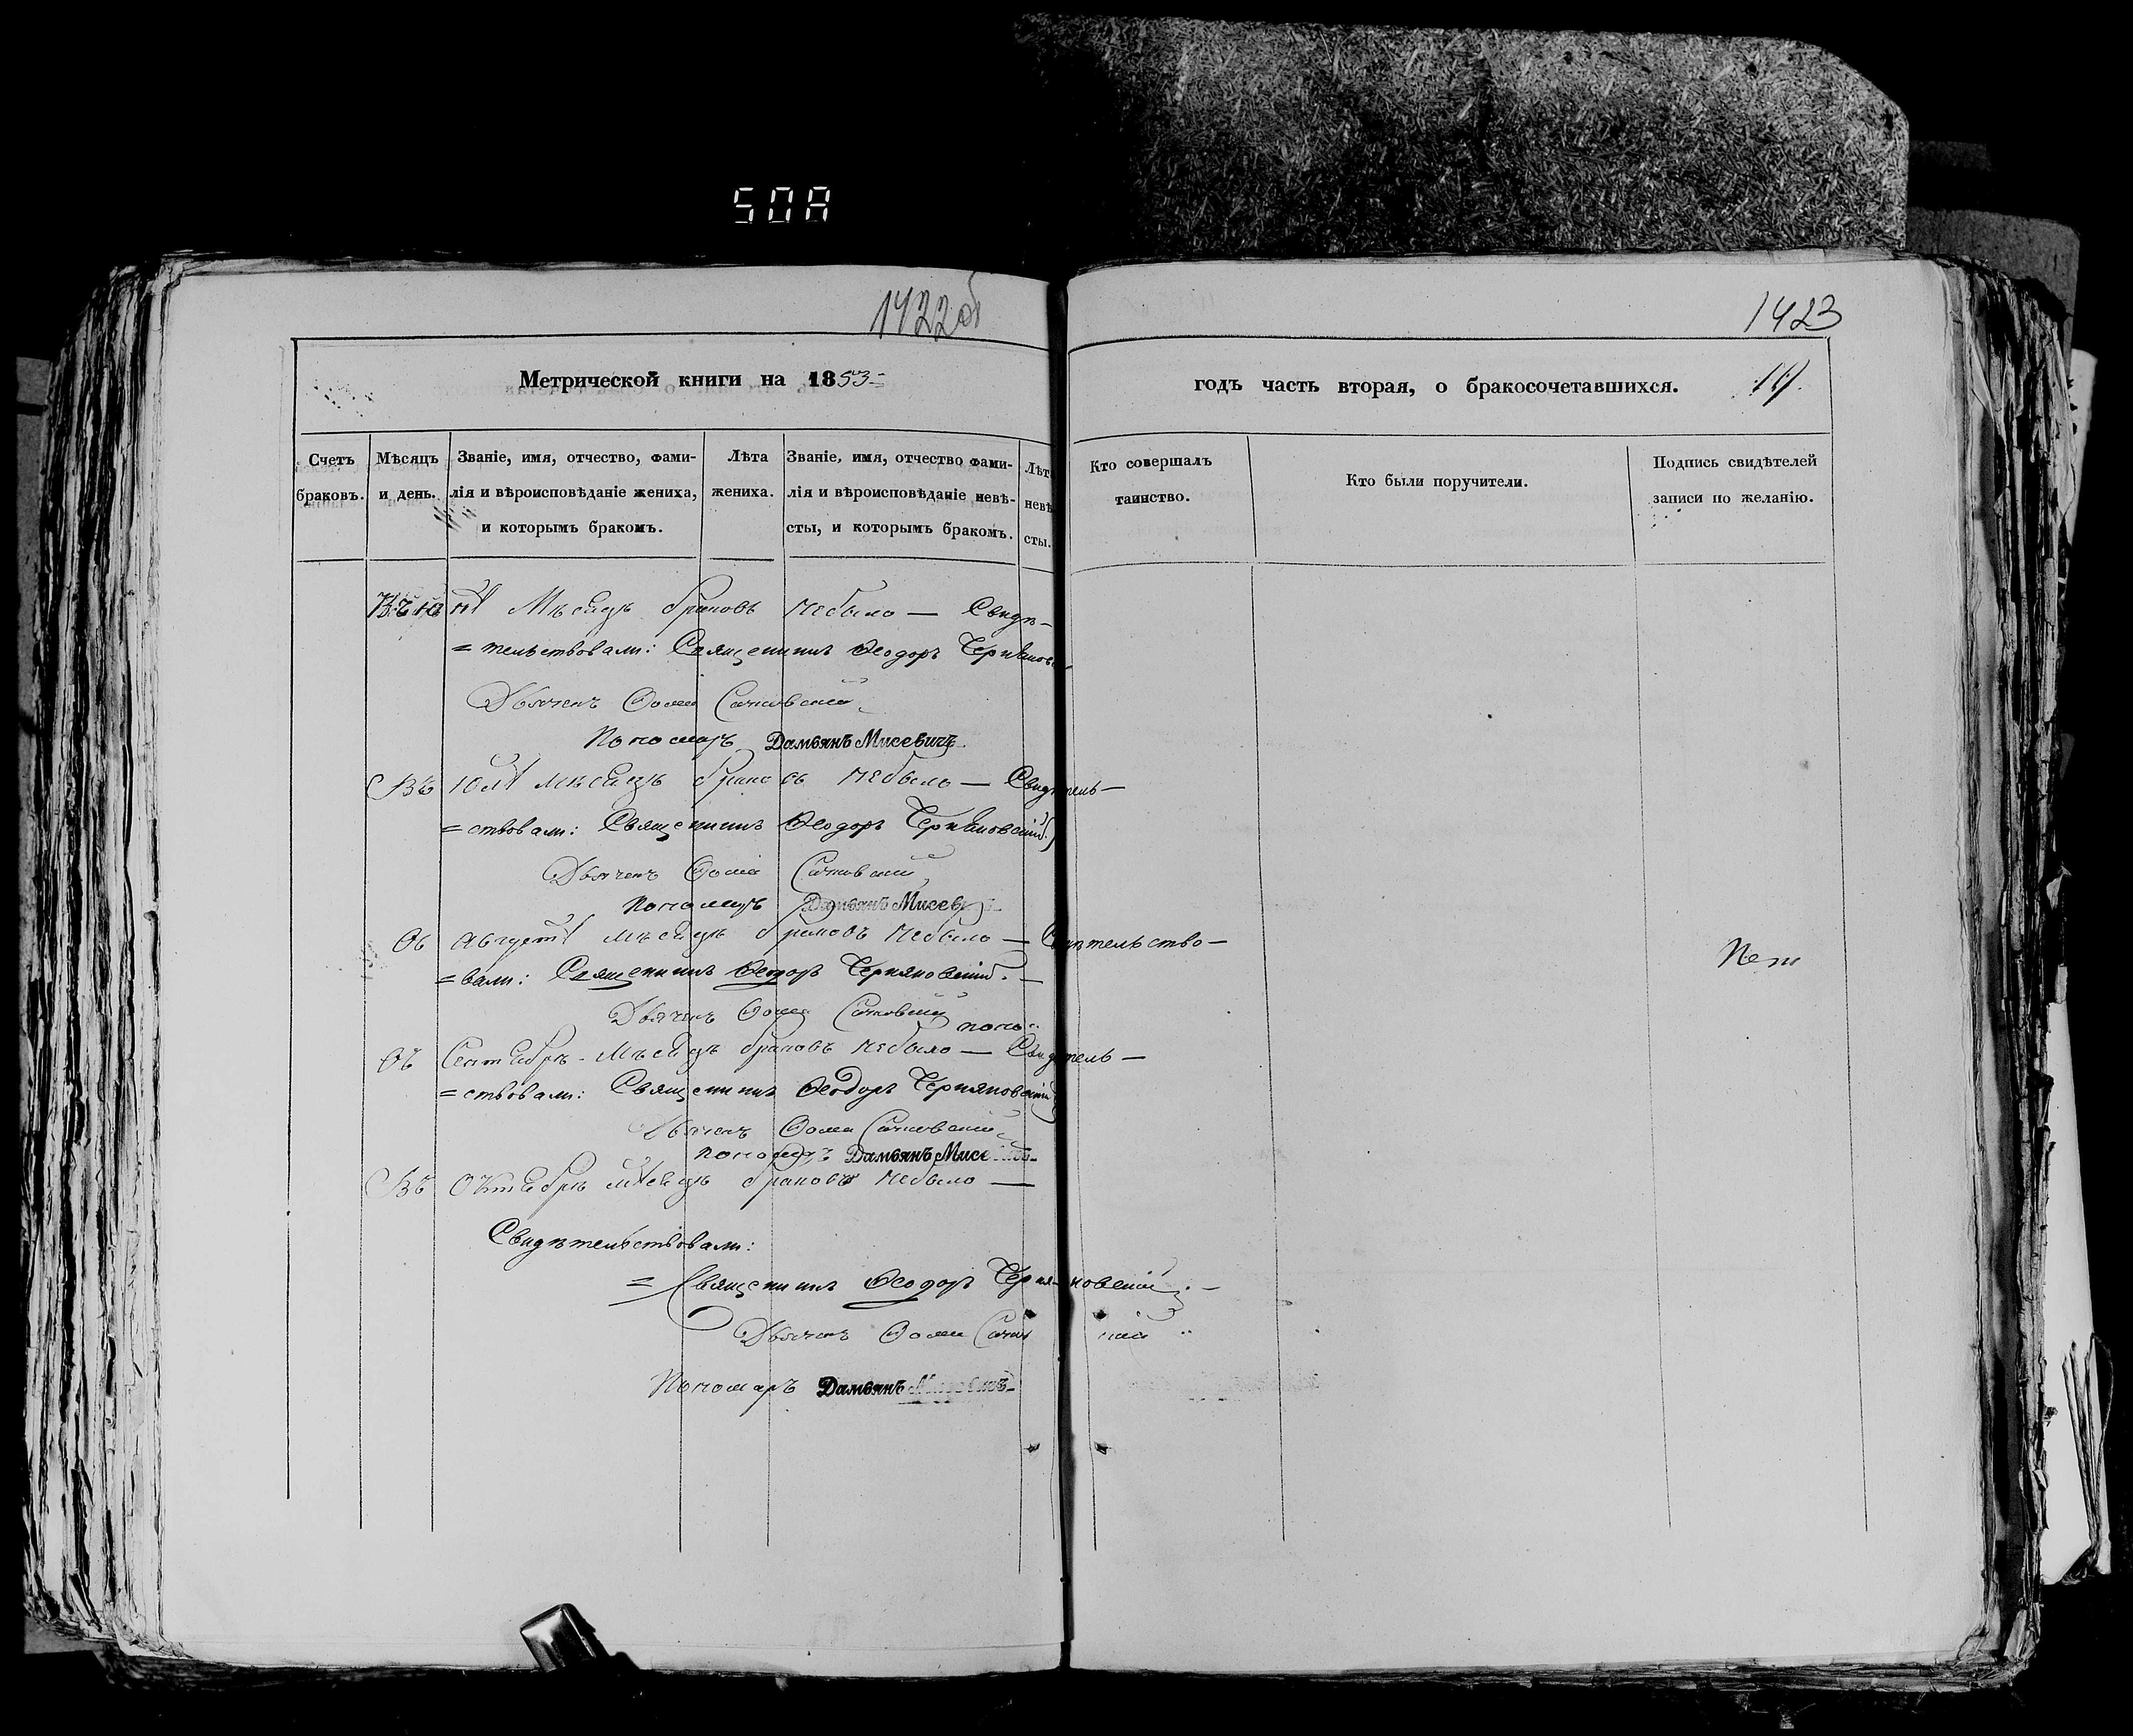 50A
1422об
1423
Метрической книги на 1853-
годъ часть вторая, о бракосочетавшихся.
Счетъ браковъ.
Мѣсяцъ и день.
Званіе, имя, отчество, фами-
лія и вѣроисповѣданіе жениха,
и которымъ бракомъ.
Лѣта
жениха.
Званіе, имя, отчество фами-
лія и вѣроисповѣданіе невѣ-
сты, и которымъ бракомъ.
Лѣт
невѣ
сты.
Кто совершалъ
таинство.
Кто были поручители.
Подпись свидѣтелей
записи по желанію.
Мѣсяцѣ браковъ небыло — Свидѣ-
=тельствовали: Священникъ Ѳеодоръ
Дьячекъ Ѳома
Пономарь Дамьянъ Мисевичъ
Въ Юлѣ мѣсяцѣ браковъ небыло — Свидѣтель—
=ствовали: Священникъ Ѳеодоръ Черняновскій
Дьячекъ Ѳома
Пономарь Дамьянъ Мисев
Въ Августѣ мѣсяцѣ браковъ небыло — Свидѣтельство—
=вали: Священникъ Ѳеодоръ Черняновскій.—
Дьячекъ Ѳома
поно
Въ Сентябрѣ - Мѣсяцѣ браковъ небыло — Свидѣтель—
=ствовали: Священникъ Ѳеодоръ Черняновскій
Дьячекъ Ѳома
пономарь Дамьянъ Мисе
Въ Октябрѣ мѣсяцѣ браковъ небыло —
Свидѣтельствовали:
=Священникъ Ѳеодоръ Черняновскій.—
Дьячекъ Ѳома
Пономарь Дамьянъ